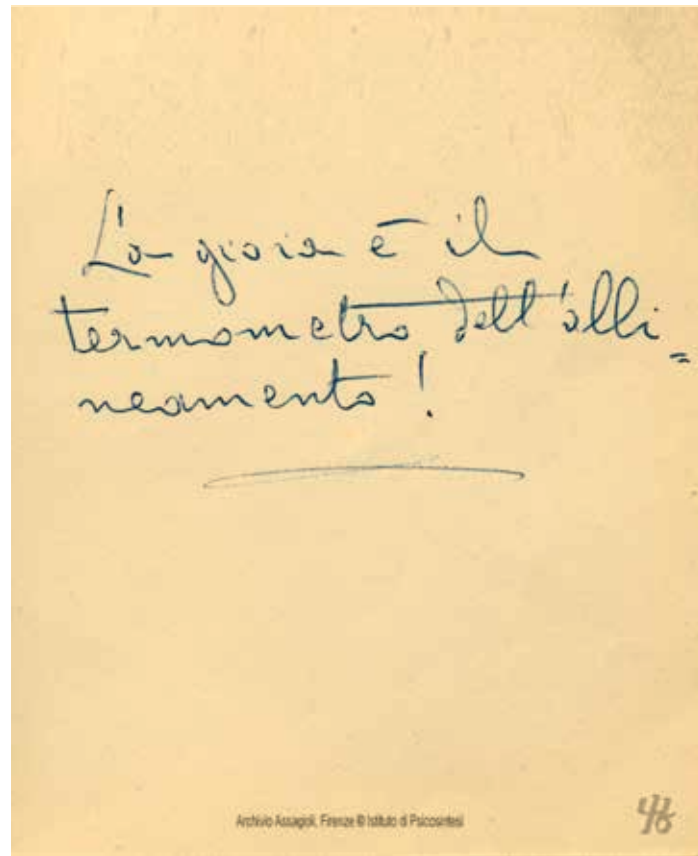 La gioia è il
termometro dell'alli=
neamento!
Archivio Assagioli, Firenze © Istituto di Psicosintesi